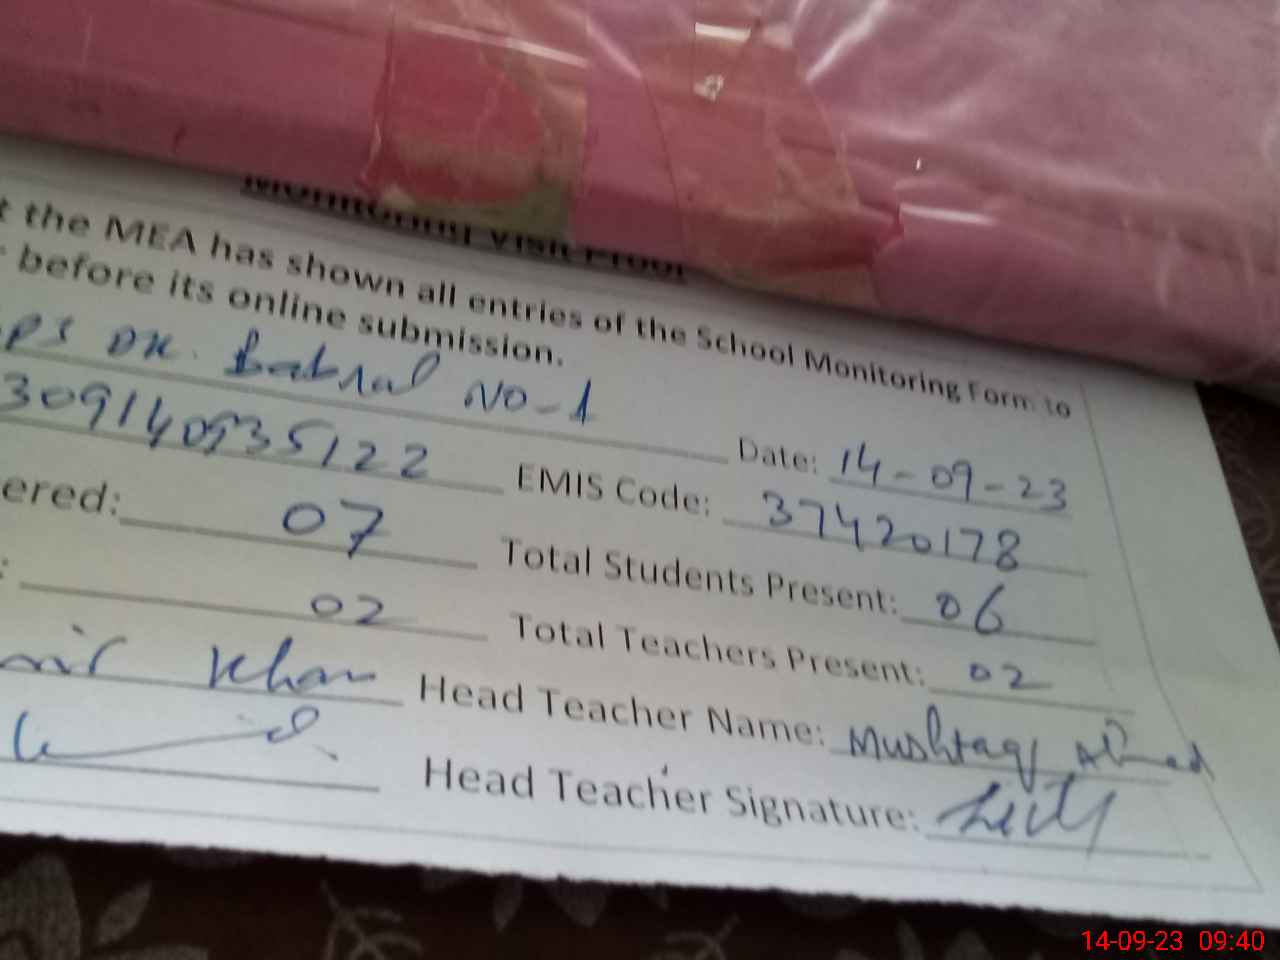 Monitoring Visit Proof
t the MEA has shown all entries of the School Monitoring Form to
r before its online submission.
PS DK. Babral NO-1
Date: 14-09-23
309140935122 EMIS Code: 37420178
ered: 07 Total Students Present: 06
: 02 Total Teachers Present: 02
Khan Head Teacher Name: Mushtaq Ahmed
Head Teacher Signature:
14-09-23 09:40